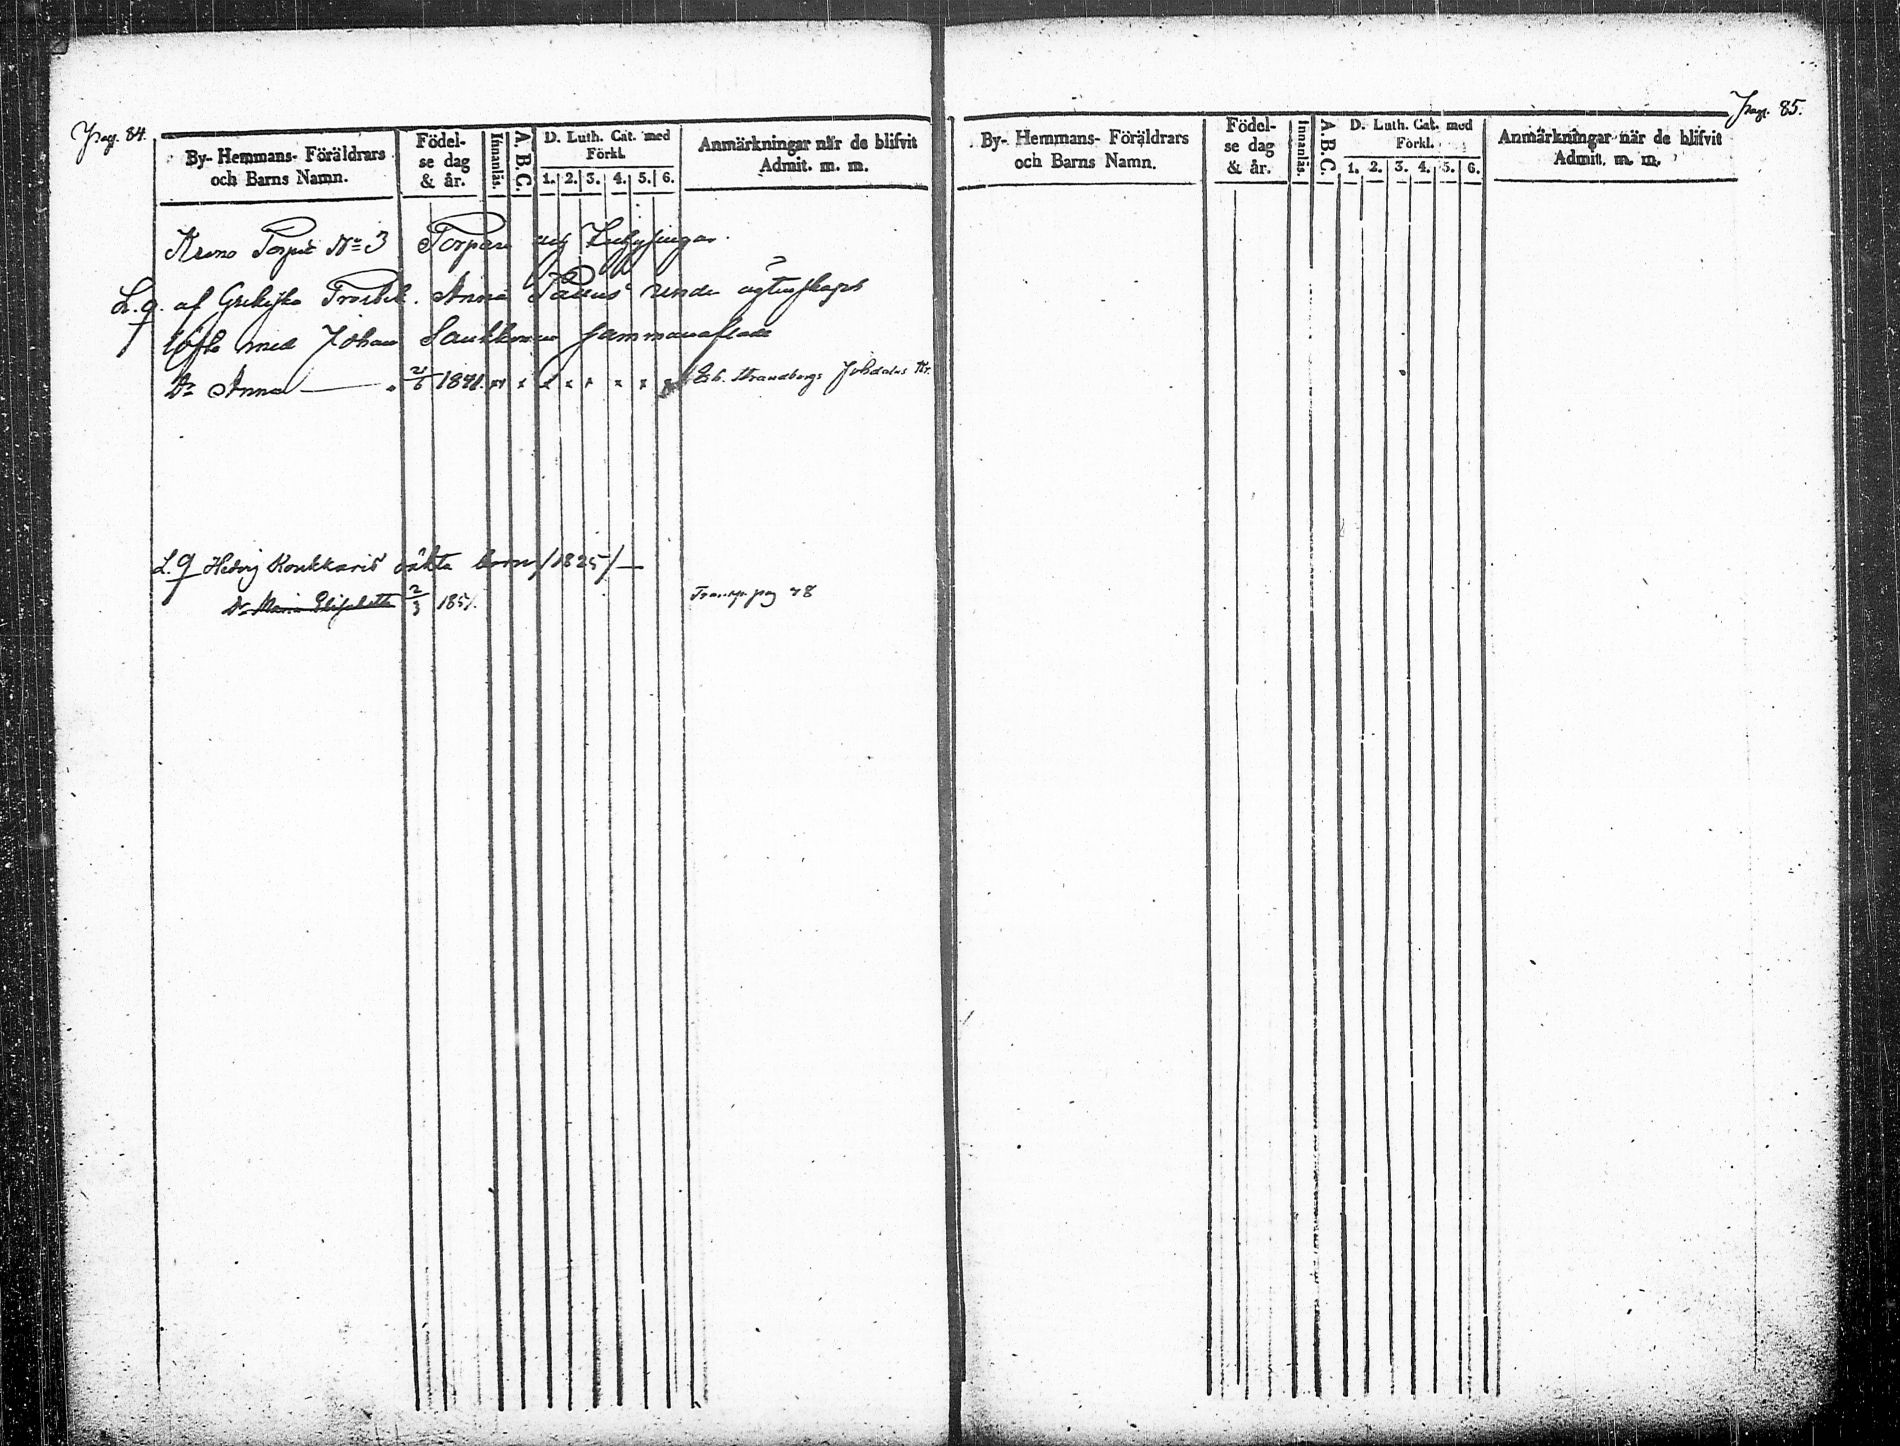 Pag. 84.
By- Hemmans- Föräldrars och Barns Namn.
Födel-se dag & år.
Innanläs.
A. B. C.
D. Luth. Cat. med Förkl.
1. 2. 3. 4. 5. 6.
Anmärkningar när de blifvit Admit. m. m.
Krono Torpet No 3 Torpare och Inhysingar.
L. q. af Grekiska Anna under ägtenskaps
löfte med Johan Saukkonen sammanaflade
Dr Anna 1841. Strandbergs
L. q Hedvig Konkkaris oäkta barn /1825/
Dr Maria Elisabeth 2/3 1851. Transp. pag 78
Pag. 85.
By- Hemmans- Föräldrars och Barns Namn.
Födel-se dag & år.
Innanläs.
A. B. C.
D. Luth. Cat. med Förkl.
1. 2. 3. 4. 5. 6.
Anmärkningar när de blifvit Admit. m. m.